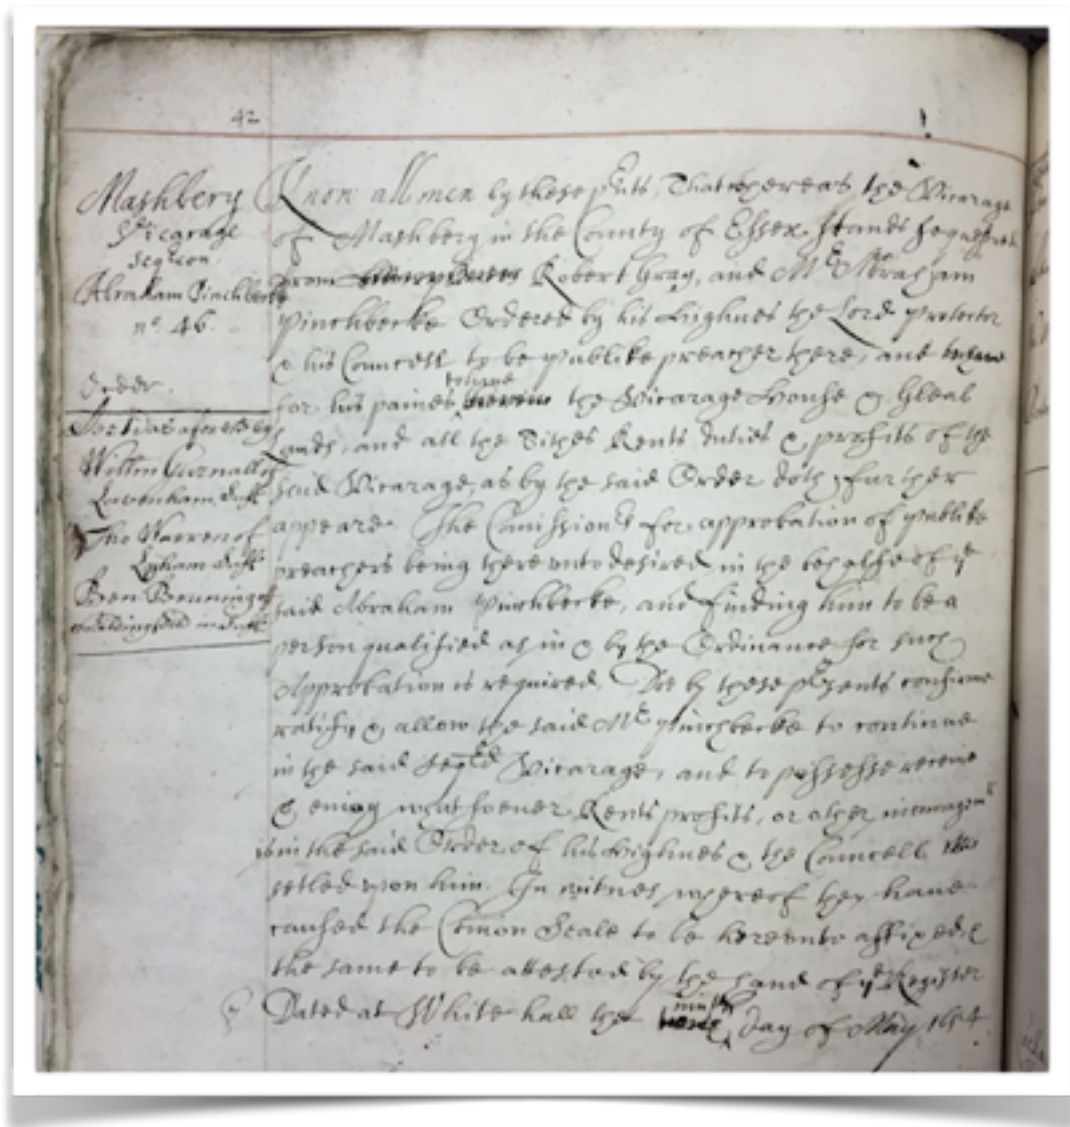 42
Mashbery
Vicarage
Seqtion
Abraham Pinchbecke
no. 46.
Order.
Certivs aforesd by
Willm Gurnall of
Lavenham Suff
Tho Warren of
Suff
Ben Bruning of
in Suff
Know all men by these pnts, That whereas the Vicarage
of Mashbery in the County of Essex stands sequestred
from Robert Gray, and Mr Abraham
Pinchbecke Ordered by his Highnes the Lord Protector
& his Councell to be publike preacher there, and
for his paines to have the Vicarage House & Gleab
Lands, and all the Tithes Rents duties & profits of the
said Vicarage, as by the said Order doth further
appeare. The Comissionrs for approbation of publike
preachers being thereunto desired in the behalfe of ye
said Abraham Pinchbecke, and finding him to be a
person qualified as in & by the Ordinance for such
Approbation is required. Doe by these presents confirme
ratify & allow the said Mr Pinchbecke to continue
in the said seqrd Vicarage, and to possesse receive
& enioy whatsoever Rents profits, or other incouragemts
is in the said Order of his Highnes & the Councell
setled upon him. In witnes whereof they have
caused the Comon Seale to be hereunto affixed &
the same to be attested by the hand of ye Register
Dated at White hall the ninth day of May 1654